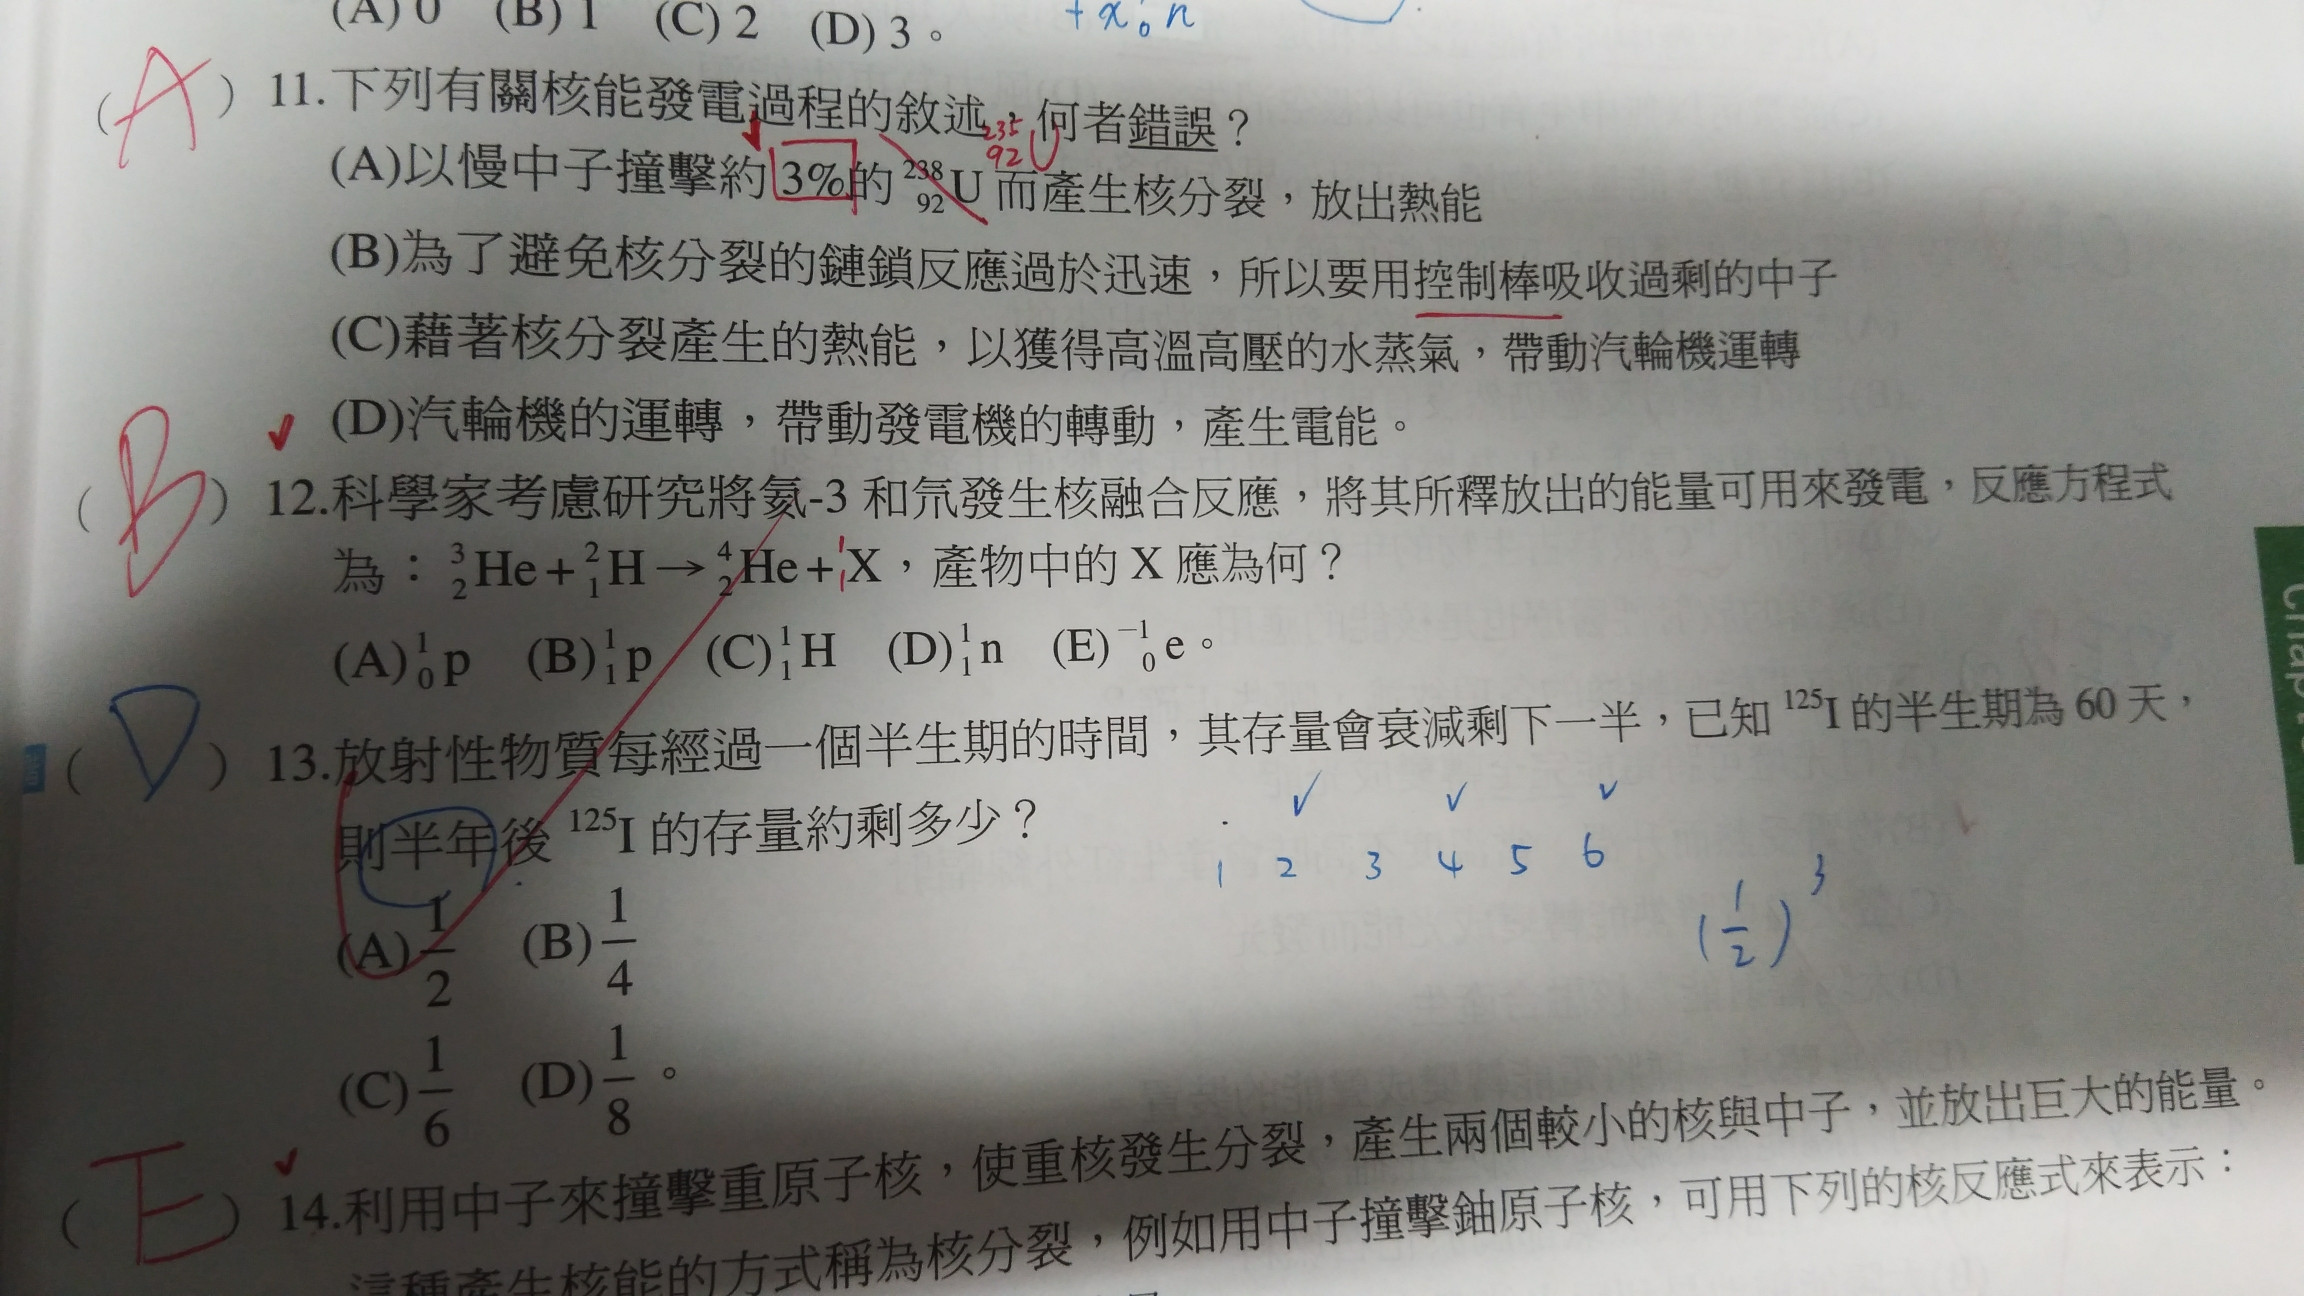 (A) 0 (B) 1 (C) 2 (D) 3。 + x ¹₀n
(A) 11.下列有關核能發電過程的敘述，何者錯誤？
²³⁵₉₂U
(A)以慢中子撞擊約 3%的 ²³⁸₉₂U 而產生核分裂，放出熱能
(B)為了避免核分裂的鏈鎖反應過於迅速，所以要用控制棒吸收過剩的中子
(C)藉著核分裂產生的熱能，以獲得高溫高壓的水蒸氣，帶動汽輪機運轉
(D)汽輪機的運轉，帶動發電機的轉動，產生電能。
(B) 12.科學家考慮研究將氦-3 和氘發生核融合反應，將其所釋放出的能量可用來發電，反應方程式
為：³₂He+²₁H→⁴₂He+¹₁X，產物中的 X 應為何？
(A)¹₀p (B)¹₁p (C)¹₁H (D)¹₁n (E)⁻¹₀e。
(D) 13.放射性物質每經過一個半生期的時間，其存量會衰減剩下一半，已知 ¹²⁵I 的半生期為 60 天，
則半年後 ¹²⁵I 的存量約剩多少？
1 2 3 4 5 6
(1/2)³
(A) 1/2 (B) 1/4
(C) 1/6 (D) 1/8。
(E) 14.利用中子來撞擊重原子核，使重核發生分裂，產生兩個較小的核與中子，並放出巨大的能量。
這種產生核能的方式稱為核分裂，例如用中子撞擊鈾原子核，可用下列的核反應式來表示：